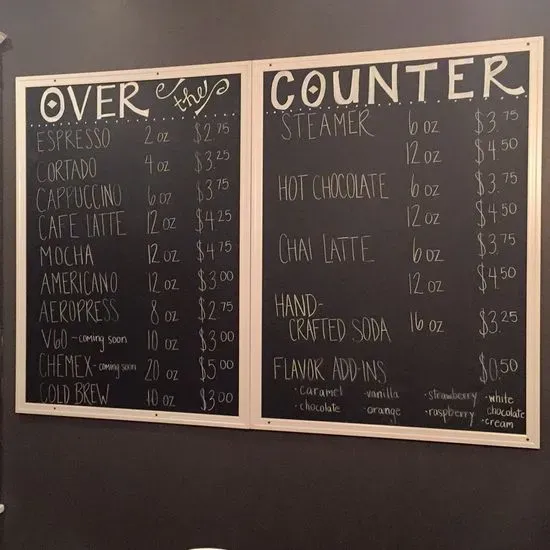 OVER the
ESPRESSO 2 oz $2.75
CORTADO 4 oz $3.25
CAPPUCCINO 6 oz $3.75
CAFE LATTE 12 oz $4.25
MOCHA 12 oz $4.75
AMERICANO 12 oz $3.00
AEROPRESS 8 oz $2.75
V60 - coming soon 10 oz $3.00
CHEMEX - coming soon 20 oz $5.00
COLD BREW 10 oz $3.00
COUNTER
STEAMER 6 oz $3.75
12 oz $4.50
HOT CHOCOLATE 6 oz $3.75
12 oz $4.50
CHAI LATTE 6 oz $3.75
12 oz $4.50
HAND-
CRAFTED SODA 16 oz $3.25
FLAVOR ADD-INS $0.50
· caramel · vanilla · strawberry · white
· chocolate · orange · raspberry chocolate
· cream